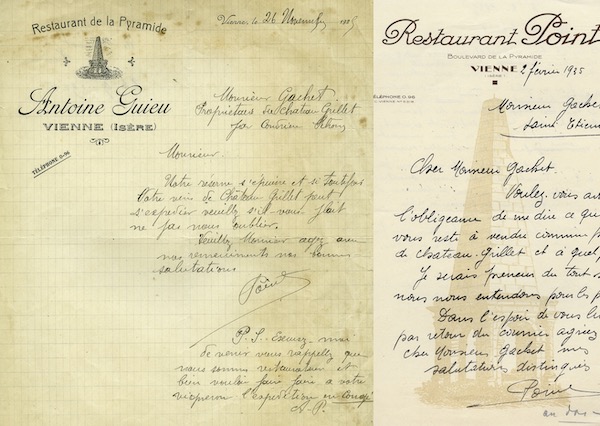 Restaurant de la Pyramide
Antoine Guieu
VIENNE (ISÈRE)
TÉLÉPHONE 0-96
Vienne, le 26 Novembre
Monsieur Gachet
Propriétaire du Chateau Grillet
par Condrieu Rhône
Monsieur
Notre reserve s'épuise et si toutefois
Votre vin de Château Grillet peut
s'expedier veuillez s'il vous plait
ne pas nous oublier.
Veuillez Monsieur agréer avec
nos remerciments nos bonnes
salutations
Point
P.S. Excusez moi
de venir vous rappeler que
nous sommes restaurateur et
bien vouloir faire faire a votre
vigneron l'expedition en congé
Restaurant Point
BOULEVARD DE LA PYRAMIDE
VIENNE
(ISÈRE)
2 février 1935
TÉLÉPHONE 0.96
Monsieur Gache
Saint Etien
Cher Monsieur Gachet.
Voulez vous av
l'obligeance de me dire ce qu
vous reste à vendre comme
de chateau-Grillet et à quel
Je serais preneur du tout
nous nous entendons pour les p
Dans l'espoir de vous li
par retour du courrier agréez
cher Monsieur Gachet mes
salutations distinguées
Point